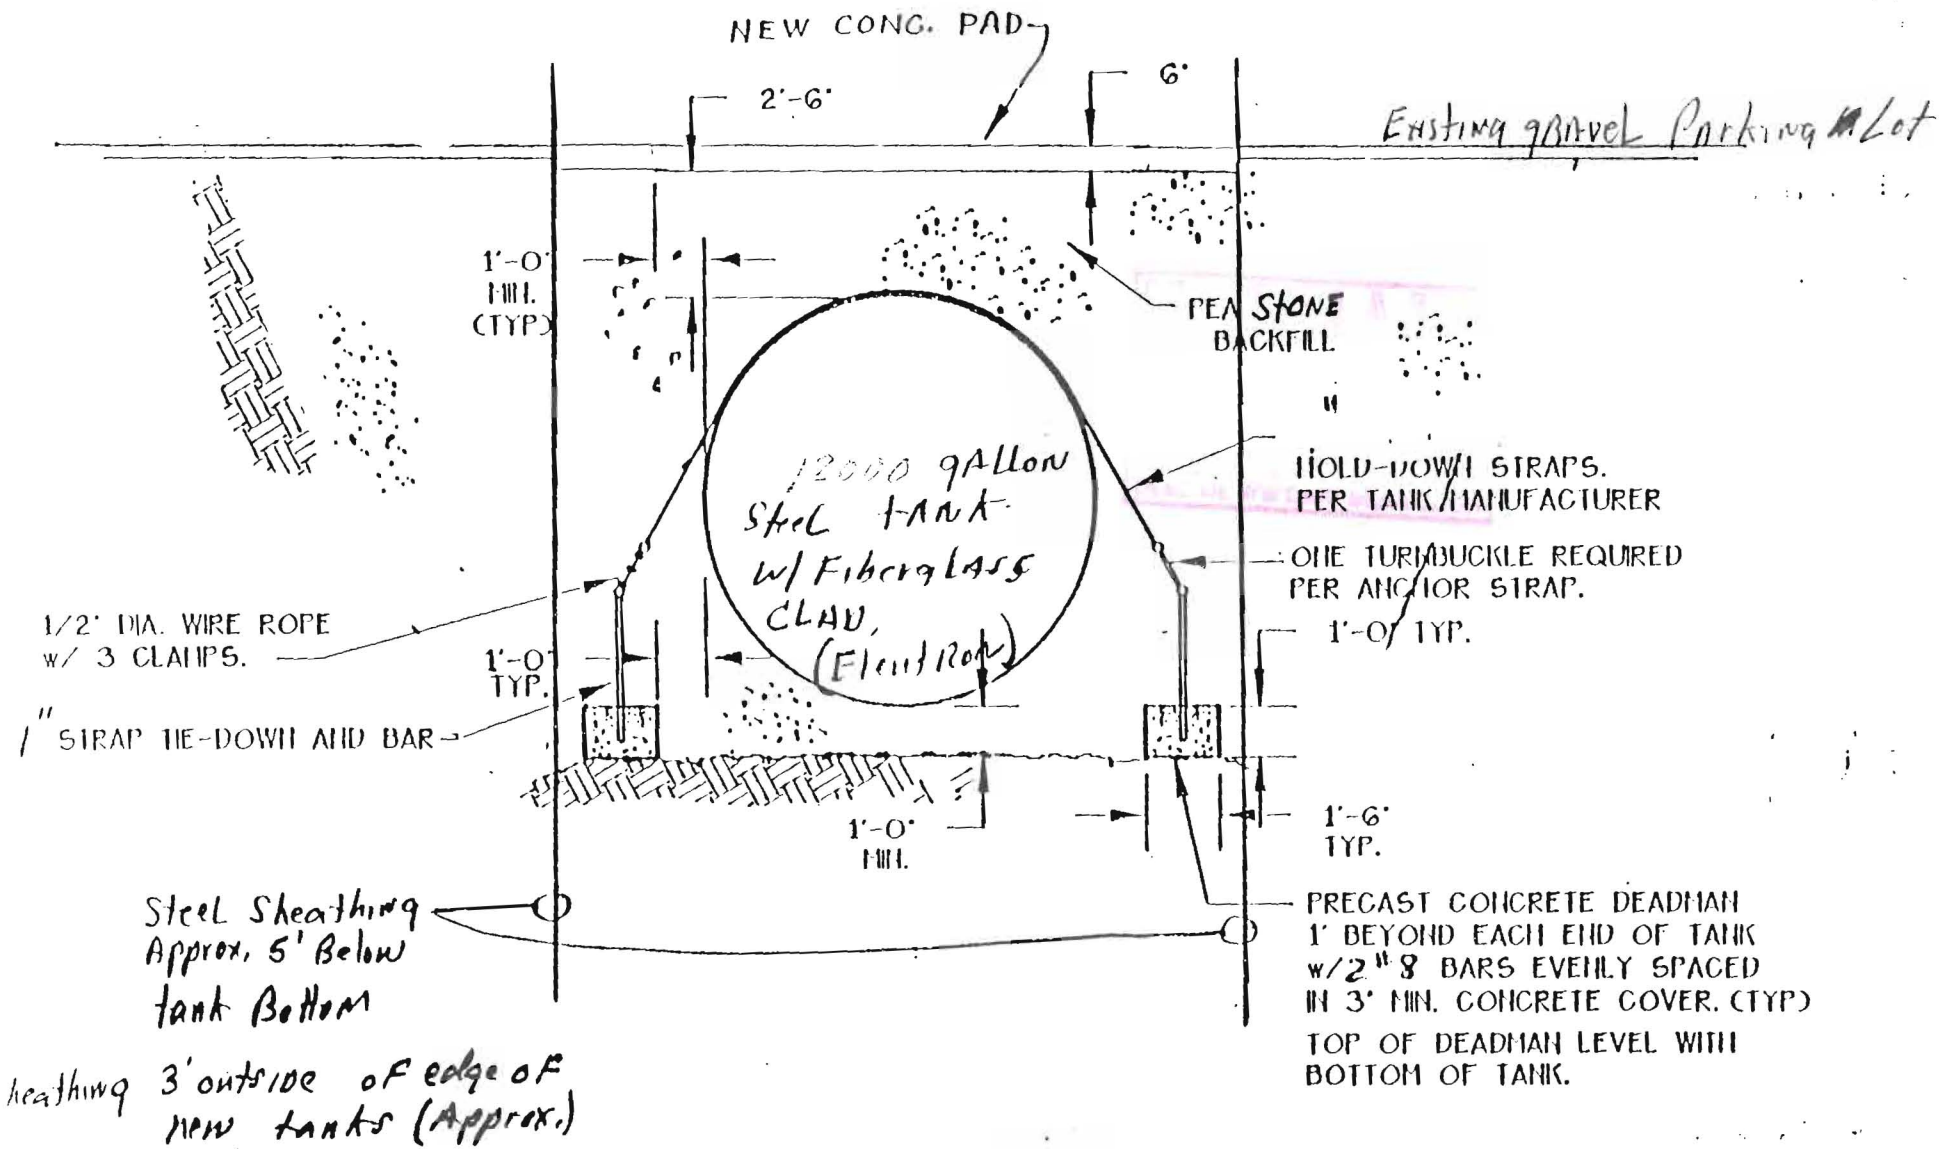 NEW CONC. PAD
2'-6"
6"
Existing gravel Parking Lot
1'-0"
MIN.
(TYP)
PEA STONE
BACKFILL
"
12000 gallon
Steel tank
w/ Fiberglass
CLAD,
HOLD-DOWN STRAPS.
PER TANK MANUFACTURER
ONE TURNBUCKLE REQUIRED
PER ANCHOR STRAP.
1/2" DIA. WIRE ROPE
w/ 3 CLAMPS.
1'-0"
TYP.
1'-0" TYP.
1" STRAP TIE-DOWN AND BAR
1'-0"
MIN.
1'-6"
TYP.
Steel Sheathing
Approx. 5' Below
tank Bottom
PRECAST CONCRETE DEADMAN
1' BEYOND EACH END OF TANK
w/2 #8 BARS EVENLY SPACED
IN 3" MIN. CONCRETE COVER. (TYP)
TOP OF DEADMAN LEVEL WITH
BOTTOM OF TANK.
heathing 3' outside of edge of
new tanks (Approx.)